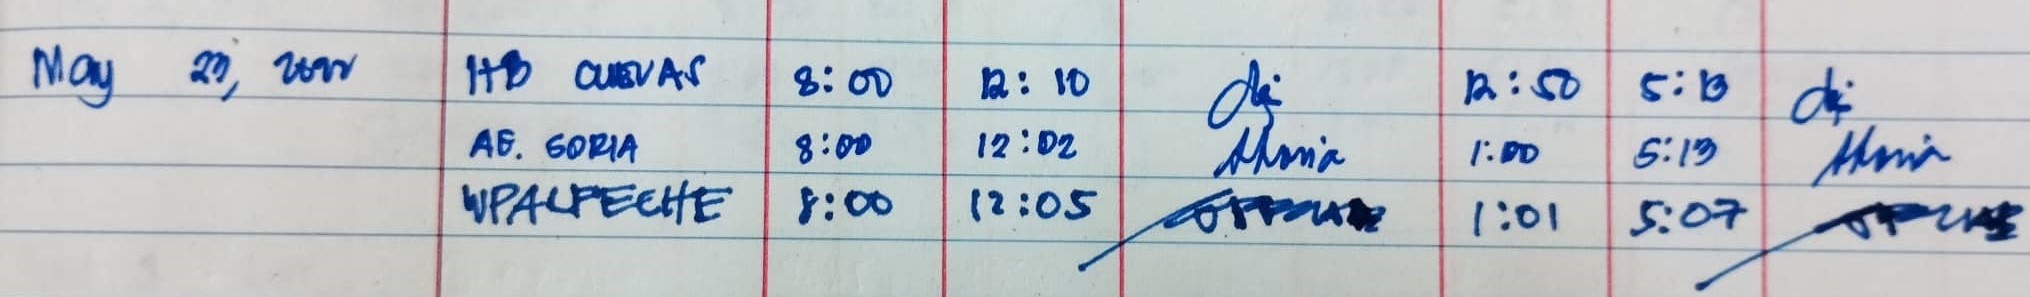 May 23, 2022 HB CUEVAS 8:00 12:10 12:50 5:13
AE. SORIA 8:00 12:02 ASoria 1:00 5:13 ASoria
WPALPECHE 8:00 12:05 1:01 5:07